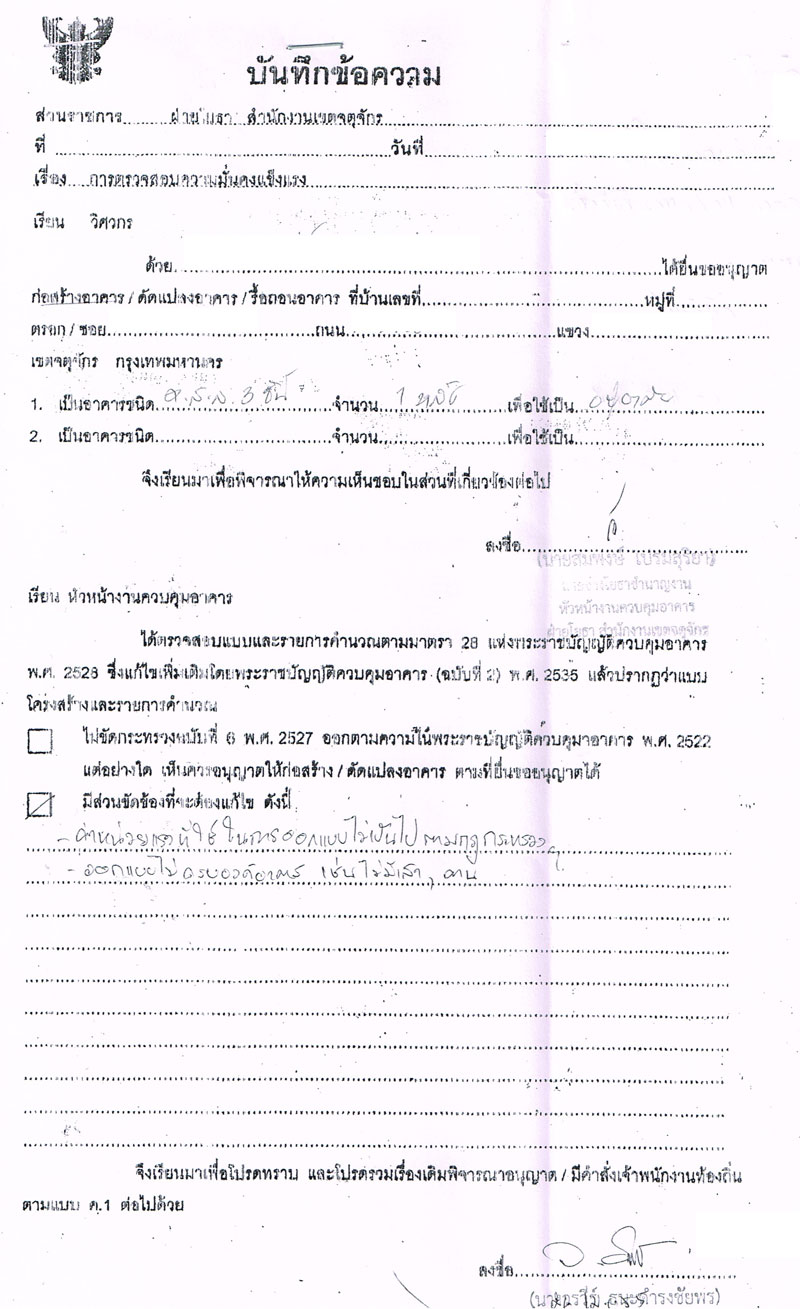 บันทึกข้อความ
ส่วนราชการ......ฝ่ายโยธา สำนักงานเขตจตุจักร
ที่ ............วันที่............
เรื่อง การตรวจสอบความมั่นคงแข็งแรง
เรียน วิศวกร
ด้วย............ได้ยื่นขออนุญาต
ก่อสร้างอาคาร / ดัดแปลงอาคาร / รื้อถอนอาคาร ที่บ้านเลขที่............หมู่ที่............
ตรอก / ซอย............ถนน............แขวง............
เขตจตุจักร กรุงเทพมหานคร
1. เป็นอาคารชนิด ค.ส.ล. 3 ชั้น จำนวน 1 หลัง เพื่อใช้เป็น อยู่อาศัย
2. เป็นอาคารชนิด............จำนวน............เพื่อใช้เป็น............
จึงเรียนมาเพื่อพิจารณาให้ความเห็นชอบในส่วนที่เกี่ยวข้องต่อไป
ลงชื่อ............
หัวหน้างานควบคุมอาคาร
ฝ่ายโยธา สำนักงานเขตจตุจักร
เรียน หัวหน้างานควบคุมอาคาร
ได้ตรวจสอบแบบและรายการคำนวณตามมาตรา 28 แห่งพระราชบัญญัติควบคุมอาคาร
พ.ศ. 2528 ซึ่งแก้ไขเพิ่มเติมโดยพระราชบัญญัติควบคุมอาคาร (ฉบับที่ 2) พ.ศ. 2535 แล้วปรากฏว่าแบบ
โครงสร้างและรายการคำนวณ
ไม่ขัดกระทรวงฉบับที่ 6 พ.ศ. 2527 ออกตามความในพระราชบัญญัติควบคุมาอาคาร พ.ศ. 2522
แต่อย่างใด เห็นควรอนุญาตให้ก่อสร้าง / ดัดแปลงอาคาร ตามที่ยื่นขออนุญาตได้
มีส่วนขัดข้องที่จะต้องแก้ไข ดังนี้
- ค่าหน่วยแรงที่ใช้ในการออกแบบไม่เป็นไปตามกฎกระทรวงฯ
- ออกแบบไม่ครบองค์อาคาร เช่นไม่มีเสา, คาน
จึงเรียนมาเพื่อโปรดทราบ และโปรดรวมเรื่องเดิมพิจารณาอนุญาต / มีคำสั่งเจ้าพนักงานท้องถิ่น
ตามแบบ ค.1 ต่อไปด้วย
ลงชื่อ............